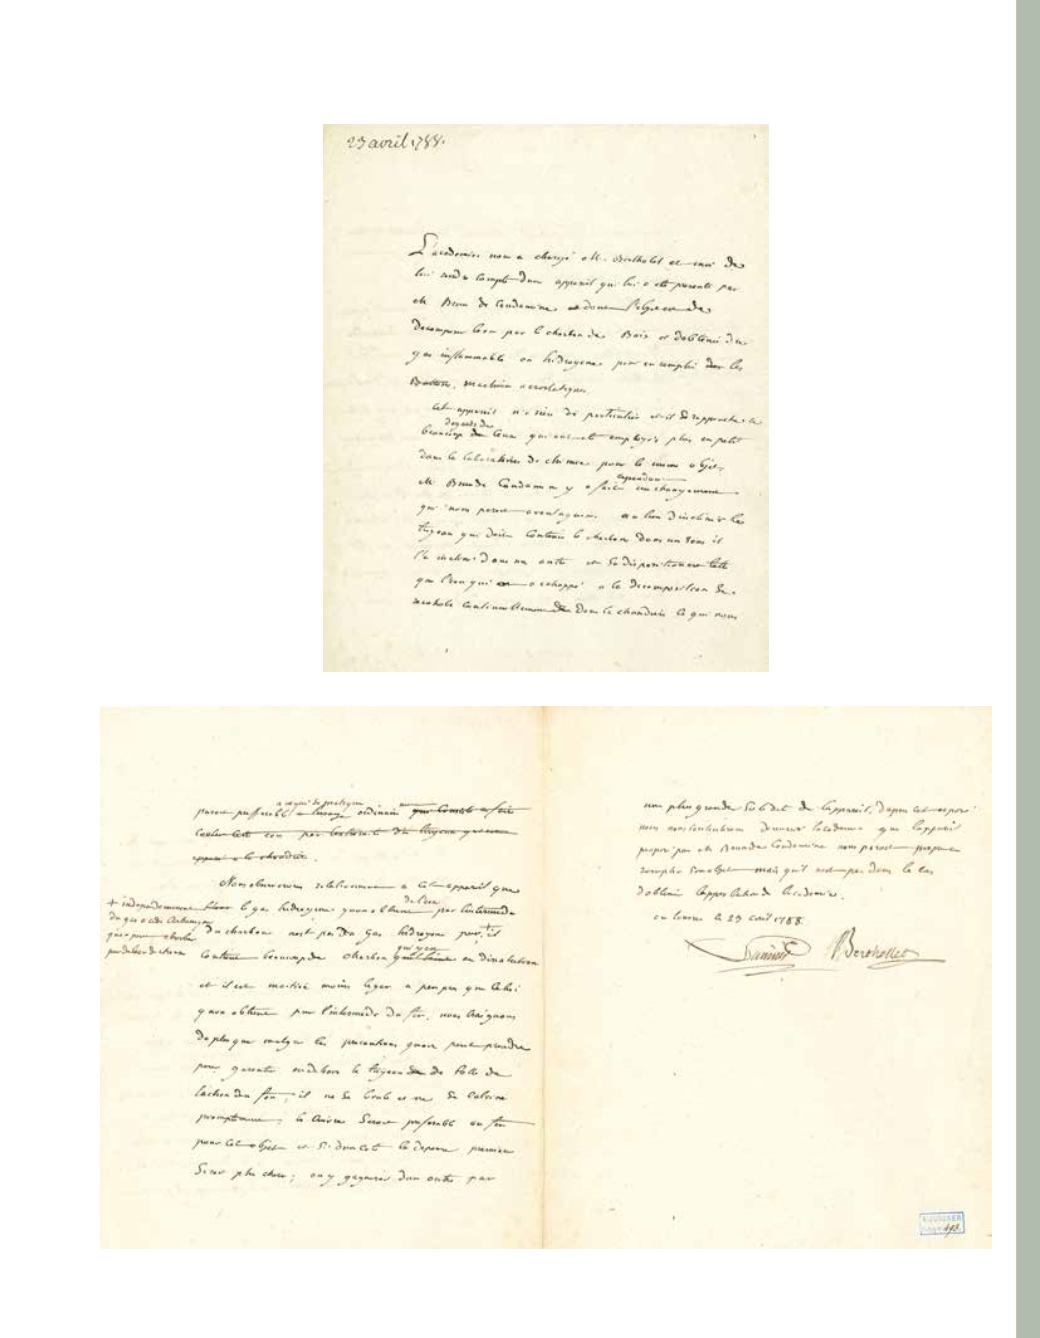 23 avril 1788.
L'academie nous a chargé M. Berthollet et moi de
lui rendre compte dun appareil qui lui a eté presenté par
M Brun de Condamine et dont l'objet est de
decomposer leau par le charbon de Bois et dobtenir du
gas inflammable ou hidrogene pour en remplir les
machines aerostatiques.
cet appareil n'a rien de particulier et il se rapproche
beaucoup de ceux qui ont eté employés plus en petit
dans les laboratoires de chimie pour le meme objet.
M Brun de Condamine y a fait cependant un changement
qui nous paroit avantageux. au lieu d'incliner le
tuyau qui doit contenir le charbon dans un sens il
l'a incliné dans un autre et sa disposition est telle
que l'eau qui a echappé a la decomposition
continuellement dans la chaudiere ce qui nous
paroit preferable a ce qui se pratique ordinairement
Nous observerons relativement a cet appareil que
le gas hidrogene quon obtient de l'eau par l'intermede
du charbon nest pas du gas hidrogene pur, il
+ independamment
du gas acide
contient beaucoup de charbon qui y est en dissolution
et il est moitié moins leger a peu pres que celui
quon obtient par l'intermede du fer. nous craignons
de plus que malgré les precautions quon peut prendre
pour garantir au dehors le tuyau de tolle de
laction du feu, il ne se brule et ne se calcine
promptement; le cuivre seroit preferable au fer
pour cet objet et si dun coté la depense premiere
seroit plus chere; on y gagneroit dun autre par
une plus grande solidité de l'appareil. dapres cet exposé
nous nous contenterons d'assurer lacademie que l'appareil
proposé par M Brun de Condamine nous paroit propre a
remplir son objet mais quil nest pas dans le cas
d'obtenir l'approbation de lacademie.
au louvre le 23 avril 1788.
Lavoisier Berthollet